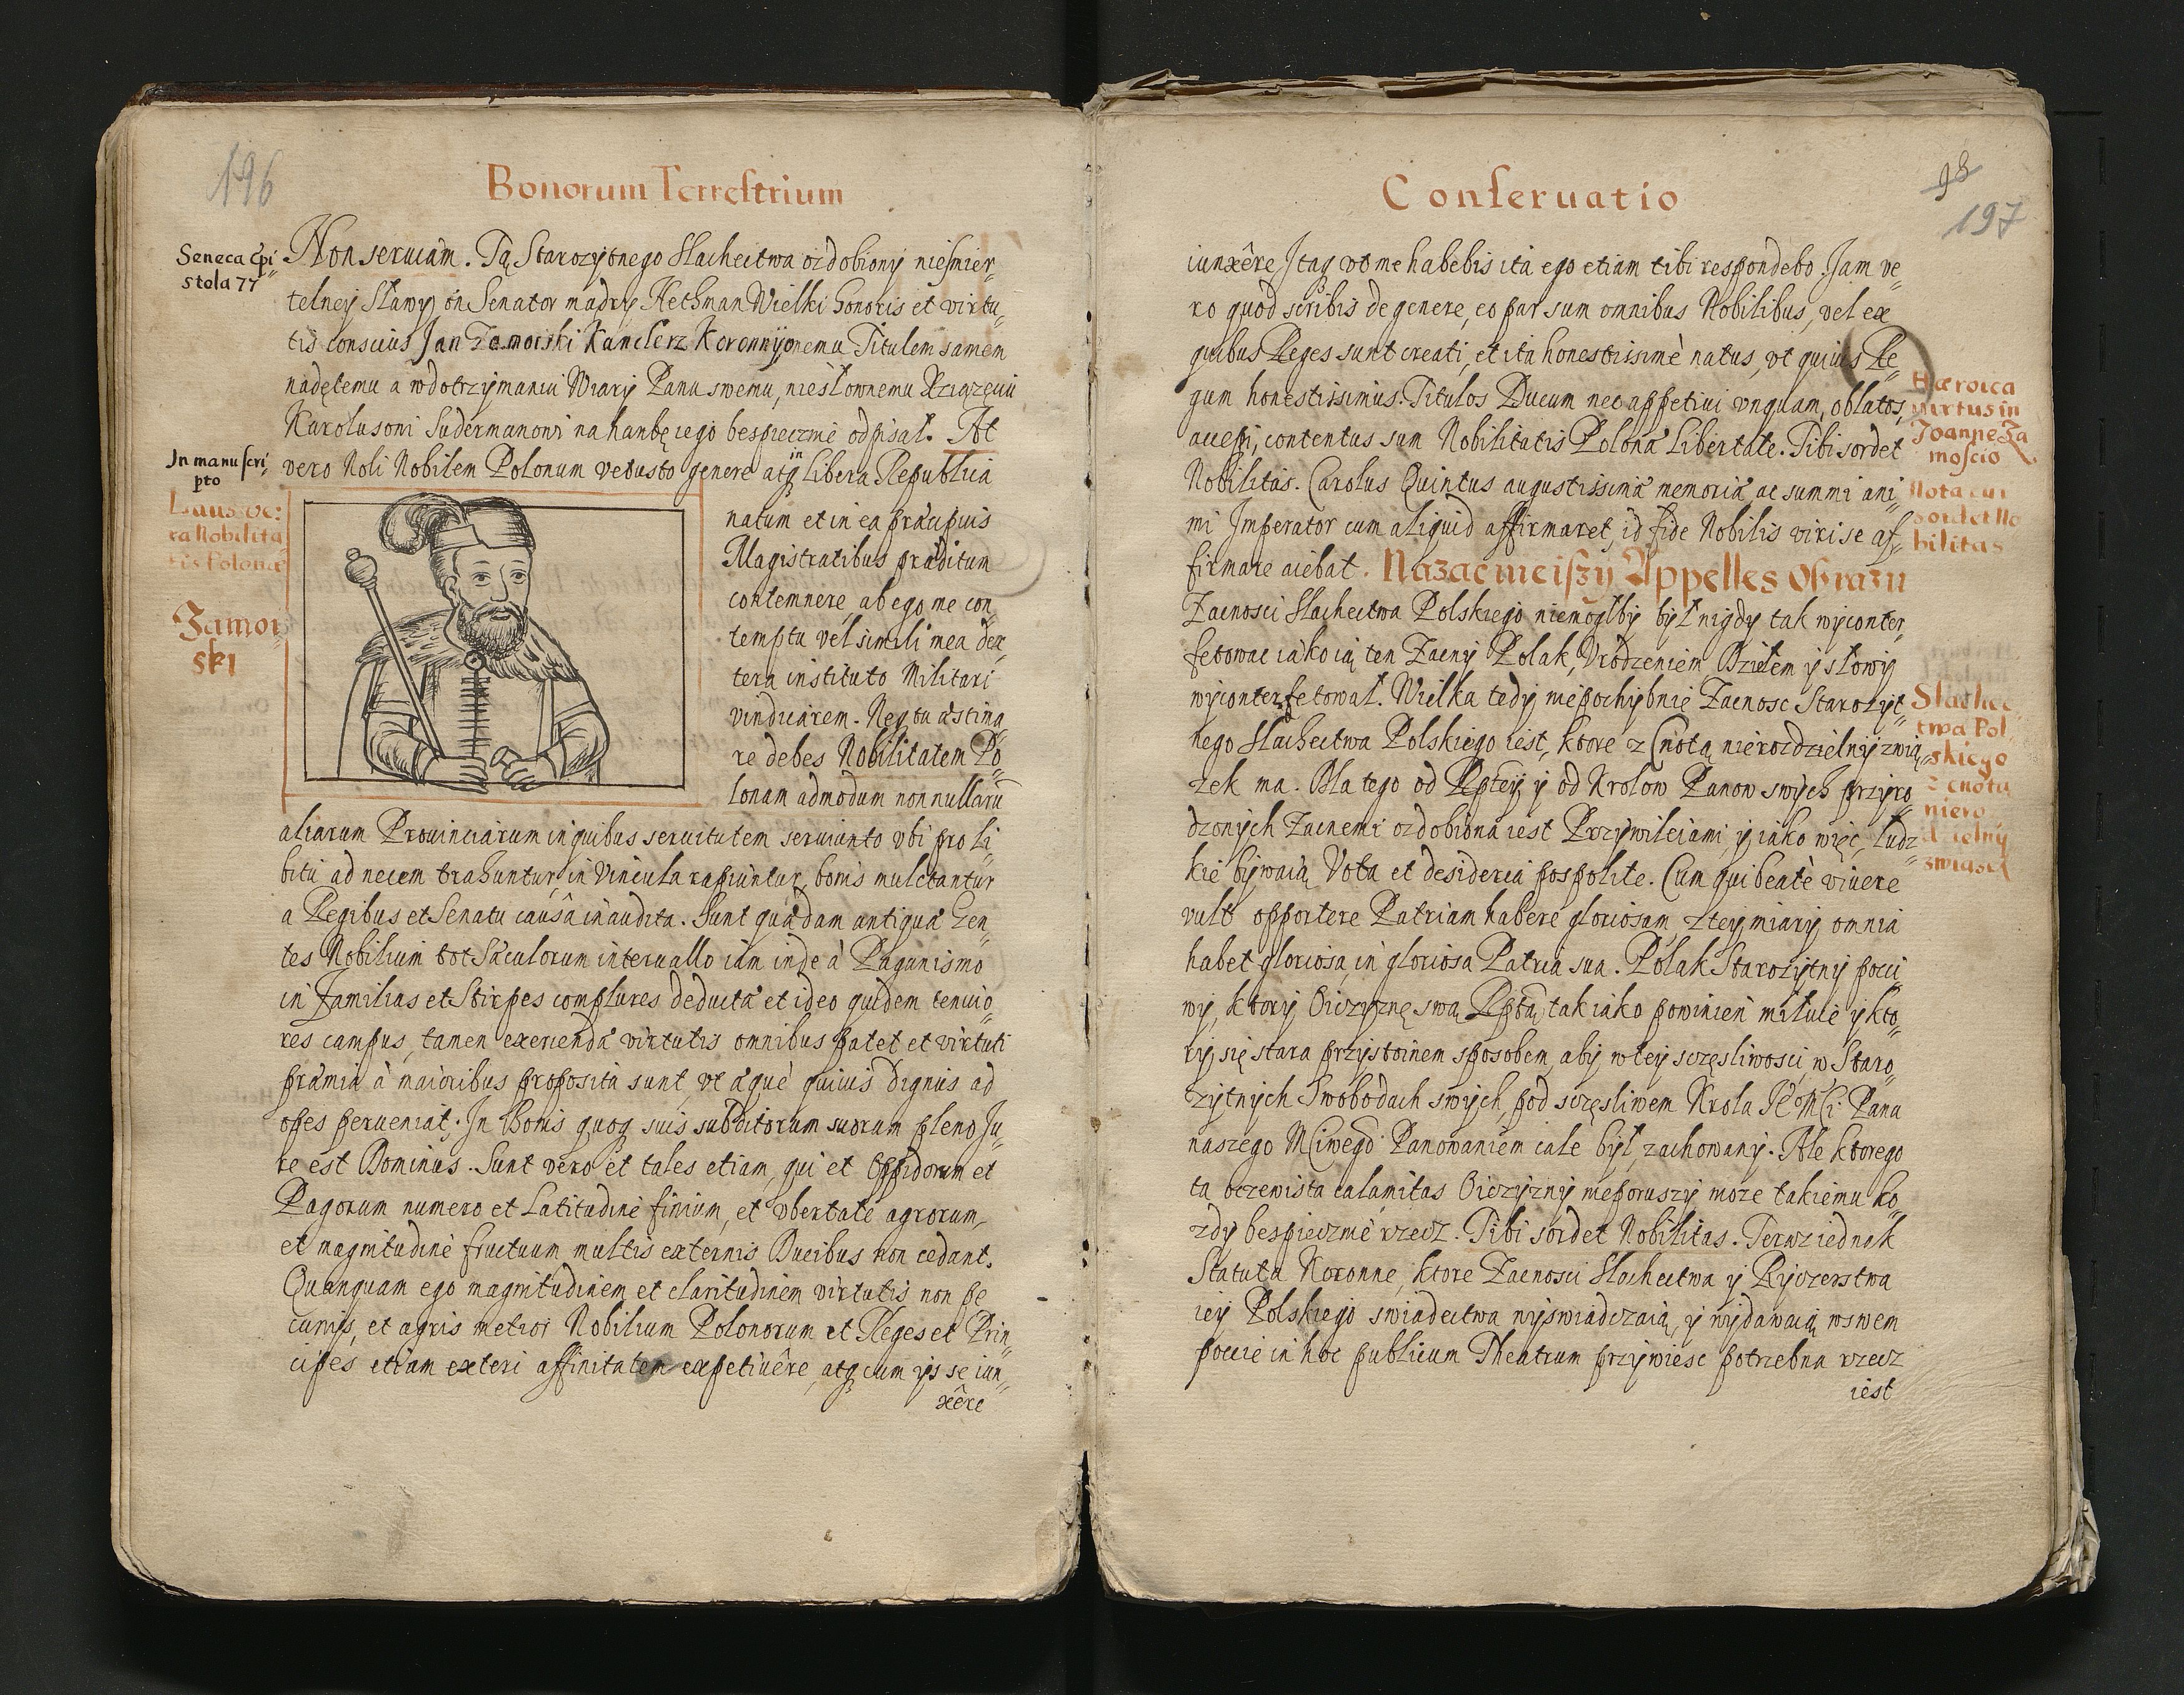 196
Bonorum Terrestrium
Seneca Epi
stola 77
Non seruiam. Tą Starozytnego Slachectwa ozdobiony niesmier
telney Sławy on Senator mądry Hethman Wielki honoris et virtu
tis conscius Jan Zamoiski Kanclerz Koronny onemu Titulem samem
nadętemu a w dotrzymaniu Wiary Panu swemu, niesłownemu Xciązęciu
Karolusowi Sudermanowi na hanbę iego bespiecznie odpisał. At
In manuscri
pto
vero Noli Nobilem Polonum vetusto genere atq in libera Republica
Laus ve:
ra Nobilita
tis Polonæ
Zamoi
ski
natum et in ea præcipuis
Magistratibus præditum
contemnere, ab ego me con
temptu vel simili mea dex
tera instituto Militari
vindicarem. Neq tu æstima
re debes Nobilitatem Po
lonam admodum non nullarū
aliarum Prouinciarum in quibus seruitutem seruiunto vbi pro li
bitu ad necem trahuntur, in Vincula rapiuntur, bonis mulctantur
a Regibus et Senatu causâ inaudita. Sunt quædam antiquæ Gen
tes Nobilium tot Sæculorum interuallo iam inde à Paganismo
in Familias et Stirpes complures deductæ et ideo quidem tenuio
res campus, tamen exercendæ virtutis omnibus patet et virtuti
præmia à maioribus proposita sunt, vt æquè quiuis dignus ad
opes perueniat. In Bonis quoq suis subditorum suorum pleno Ju
re est Dominus. Sunt vero et tales etiam, qui et Oppidorum et
Pagorum numero et Latitudine finium, et vbertate agrorum,
et magnitudine fructuum multis externis Ducibus non cedant.
Quanquam ego magnitudinem et claritudinem virtutis non pe
cunijs, et agris metior Nobilium Polonorum et Reges et Prin
cipes etiam exteri affinitatem expetiuêre, atq cum ijs se iun
xêre
98
197
Conseruatio
iunxêre, Itaq vt me habebis ita ego etiam tibi respondebo. Jam ve
ro quod scribis de genere, eo par sum omnibus Nobilibus, vel ex
quibus Reges sunt creati, et ita honestissimè natus, vt quiuis Re
gum honestissimus. Titulos Ducum nec appetiui vnquam, oblatos,
accepi, contentus sum Nobilitatis Polonæ Libertate. Tibi sordet
Nobilitas. Carolus Quintus augustissimæ memoriæ ac summi ani
mi Imperator cum aliquid affirmaret, id fide Nobilis viri se af
firmare aiebat. Nazacnieiszy Appelles Obrazu
Hæroica
virtus in
Joanne Za
moscio
Nota cui
sordet No
bilitas
Zacnosci Slachectwa Polskiego niemogłby był nigdy tak wyconter
fetowac iako ią ten Zacny Polak, Vrodzeniem Dziełem y słowy
wyconterfetował. Wielka tedy niepochybnie Zacnosc Starozyt
nego Slachectwa Polskiego iest, ktore z Cnotą nierozdzielny zwią
zek ma. Dla tego od Rptey y od Krolow Panow swych przyro
dzonych Zacnemi ozdobiona iest Przywileiami, y iako więc ludz
kie bywaią Vota et desideria pospolite. Cum qui beatè viuere
Slachec
twa Pol
skiego
z cnotą
niero
zdzielny
zwiazek
vult opportere Patriam habere gloriosam z tey miary omnia
habet gloriosa, in gloriosa Patria sua. Polak Starozytny pocci
wy, ktory Oiczyznę swą Rptą tak iako powinien miłuie y kto
ry się stara przystoinem sposobem, aby w tey sczęsliwosci, w Staro
zytnych Swobodach swych, pod sczęsliwem Krola JE° M Ci Pana
naszego MCiwego Panowaniem cale był zachowany. Ale ktorego
ta oczewista calamitas Oiczyzny nieporuszy moze takiemu ko
zdy bespiecznie rzecz. Tibi sordet Nobilitas. Teraz iednak
Statuta Koronne, ktore Zacnosci Slachectwa y Rycerstwa
iey Polskiego swiadectwa wyswiadczaią, y wydawaią w swem
poccie in hoc publicum Theatrum przywiesc potrzebna rzecz
iest